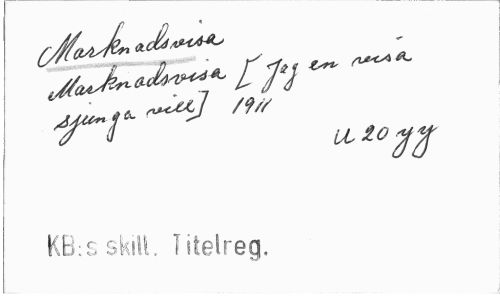 Marknadsvisa
Marknadsvisa [Jag en visa
sjunga vill] 1911
U 20 yy
KB:s skill. Titelreg.